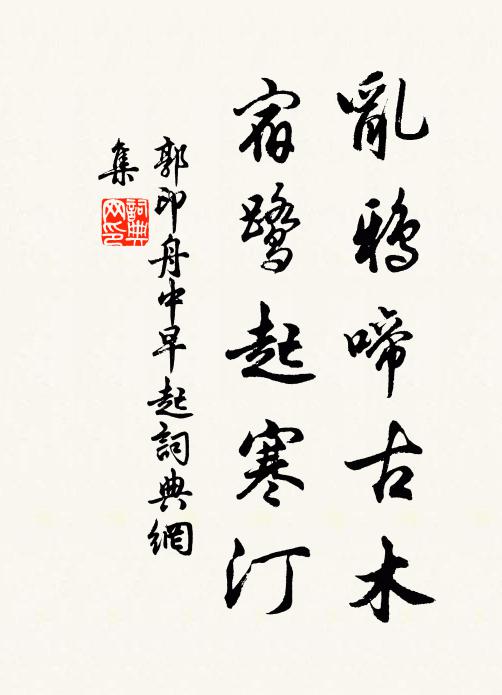 亂鴉啼古木
宿鷺起寒汀
郭印舟中早起詞典網
集
詞典
网印